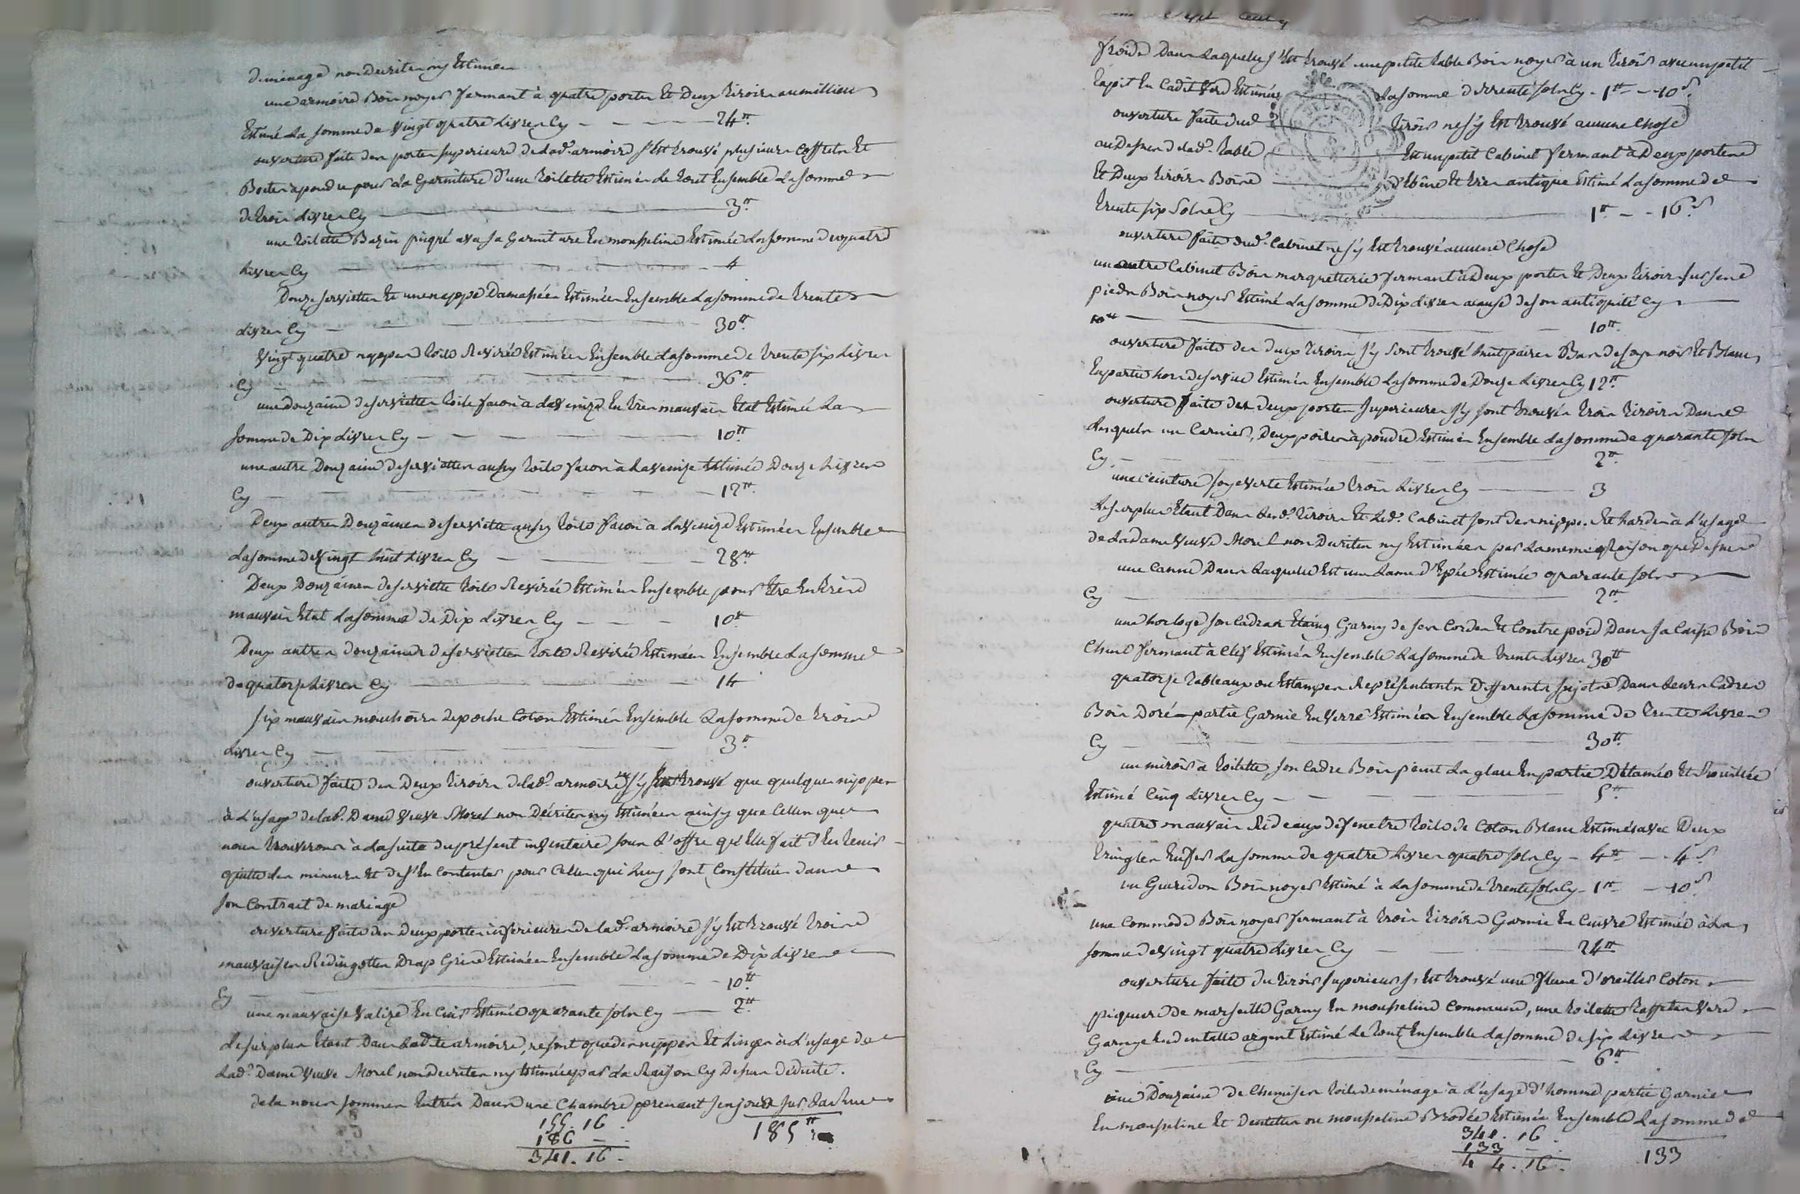 de ménage non decrites ny Estimées
une armoire Bois noyer fermant à quatre portes Et Deux tiroirs au millieu
Estimé La somme de vingt quatre Livres Cy - - - - 24tt
ouverture faite des portes superieures de lad.e armoire s'Est trouvé plusieurs Coffrets Et
Boites à poudre pour la Garniture d'une toilette Estimés Le tout Ensemble La somme
de trois Livres Cy 3tt
une toilette Bazin piqué avec sa Garniture En mousseline Estimée La somme de quatre
Livres Cy 4
Douze serviettes Et une nappe Damassées Estimées Ensemble La somme de trente
Livres Cy 30tt
vingt quatre nappes toile Estimées Ensemble La somme de trente six Livres
Cy 36tt
une douzaine de serviettes toile facon à La venize En tres mauvais Etat Estimée La
somme de Dix Livres Cy - 10tt
une autre Douzaine de serviettes aussy toile facon à La venize Estimée Douze Livres
Cy 12tt
Deux autres Douzaines de serviette aussy toile facon à La venize Estimées Ensemble
La somme de vingt huit Livres Cy 28tt
Deux Douzaines de serviette toile Estimées Ensemble pour Etre En tres
mauvais Etat La somme de Dix Livres Cy 10tt
Deux autres douzaines de serviettes toile Estimées Ensemble La somme
de quatorze Livres Cy 14
six mauvais mouchoirs de poche Coton Estimés Ensemble La somme de trois
Livres Cy 3tt
ouverture faite des Deux tiroirs de lad.e armoire s'y Est trouvé que quelques nippes
à L'usage de lad.e Dame veuve Morel non Décrites ny Estimées ainsy que Celles que
nous trouverons à La suite du présent inventaire sous L'offre qu'Elle fait d'En tenir
quitte les mineurs Et de s'En Contenter pour Celles qui Luy sont Constituées dans
son Contrait de mariage
ouverture faite des deux portes inferieures de lad.e armoire s'y Est trouvé trois
mauvaises Redingottes Drap Gris Estimées Ensemble La somme de Dix Livres
Cy 10tt
une mauvaise valize En Cuir Estimée quarante sols Cy 2tt
Le surplus Etant Dans Ladite armoire, ne sont que des nippes Et Linges à L'usage de
Lad.e Dame veuve Morel non decrites ny Estimées par La Raison Cy Dessus déduite.
de la nous sommes Entrés Dans une Chambre prenant ses jours sur La Rue
155. 16.
186 -
341. 16.
185tt
froide Dans Laquelle s'Est trouvé une petite table Bois noyer à un tiroir avec un petit
tapit En Cadit verd Estimés La somme de trente sols Cy - 1tt - 10s
ouverture faite dud. tiroir ne s'y Est trouvé aucune Chose
au Dessus de lad.e table Est un petit Cabinet fermant à Deux portes
Et Deux tiroirs Bois d'Ebène Et tres antique Estimé La somme de
trente six Sols Cy 1tt - 16s
ouverture faite dud.t Cabinet ne s'y Est trouvé aucune Chose
un autre Cabinet Bois marquetterie fermant à Deux portes Et Deux tiroirs sur ses
pieds Bois noyer Estimé La somme de Dix Livres acause de son antiquité Cy
10tt
ouverture faite des deux tiroirs s'y sont trouvé huit paires Bas de soye noir Et Blanc
En partie hors de service Estimés Ensemble La somme de Douze Livres Cy 12tt
ouverture faite des deux portes superieures s'y sont trouvés trois tiroirs Dans
Lesquels un Carnier, Deux poires à poudre Estimés Ensemble La somme de quarante sols
Cy 2tt
une Ceinture soye verte Estimée trois Livres Cy 3
Le surplus Etant Dans Lesd. tiroirs Et Led. Cabinet sont des nippes Et hardes à L'usage
de La dame veuve Morel non Decrites ny Estimées par La meme Raison que Dessus
une Canne Dans Laquelle Est une Lame d'Epée Estimée quarante sols
Cy 2tt
une horloge son Cadran Etaing Garny de ses Cordes Et Contrepoid Dans sa Caisse Bois
Chene fermant à Clef Estimés Ensemble La somme de trente Livres 30tt
quatorze tableaux ou Estampes Représentants Differents sujets Dans Leurs Cadres
Bois Doré partie Garnie En verre Estimés Ensemble La somme de trente Livres
Cy 30tt
un miroir à toilette son Cadre Bois peint La glace En partie Détamée Et Rouillée
Estimé Cinq Livres Cy 5tt
quatre mauvais Rideaux de fenetre toile de Coton Blanc Estimés avec Deux
tringles En fer La somme de quatre Livres quatre sols Cy - 4tt - 4s
un Gueridon Bois noyer Estimé à La somme de trente sols Cy - 1tt - 10s
une Commode Bois noyer fermant à trois tiroirs Garnie En Cuivre Estimée à La
somme de vingt quatre Livres Cy 24tt
ouverture faite du tiroir superieur s'Est trouvé une d'oreiller Coton
piquure de marseille Garny En mousseline Commune, une toilette taffetas verd
Garnye En dentelle argent Estimé Le tout Ensemble La somme de six Livres
Cy 6tt
une Douzaine de Chemises toile de ménage à L'usage d'homme partie Garnies
En mousseline Et Dentelles ou mousseline Brodée Estimées Ensemble La somme de
341. 16.
133 -
4 4. 16.
133